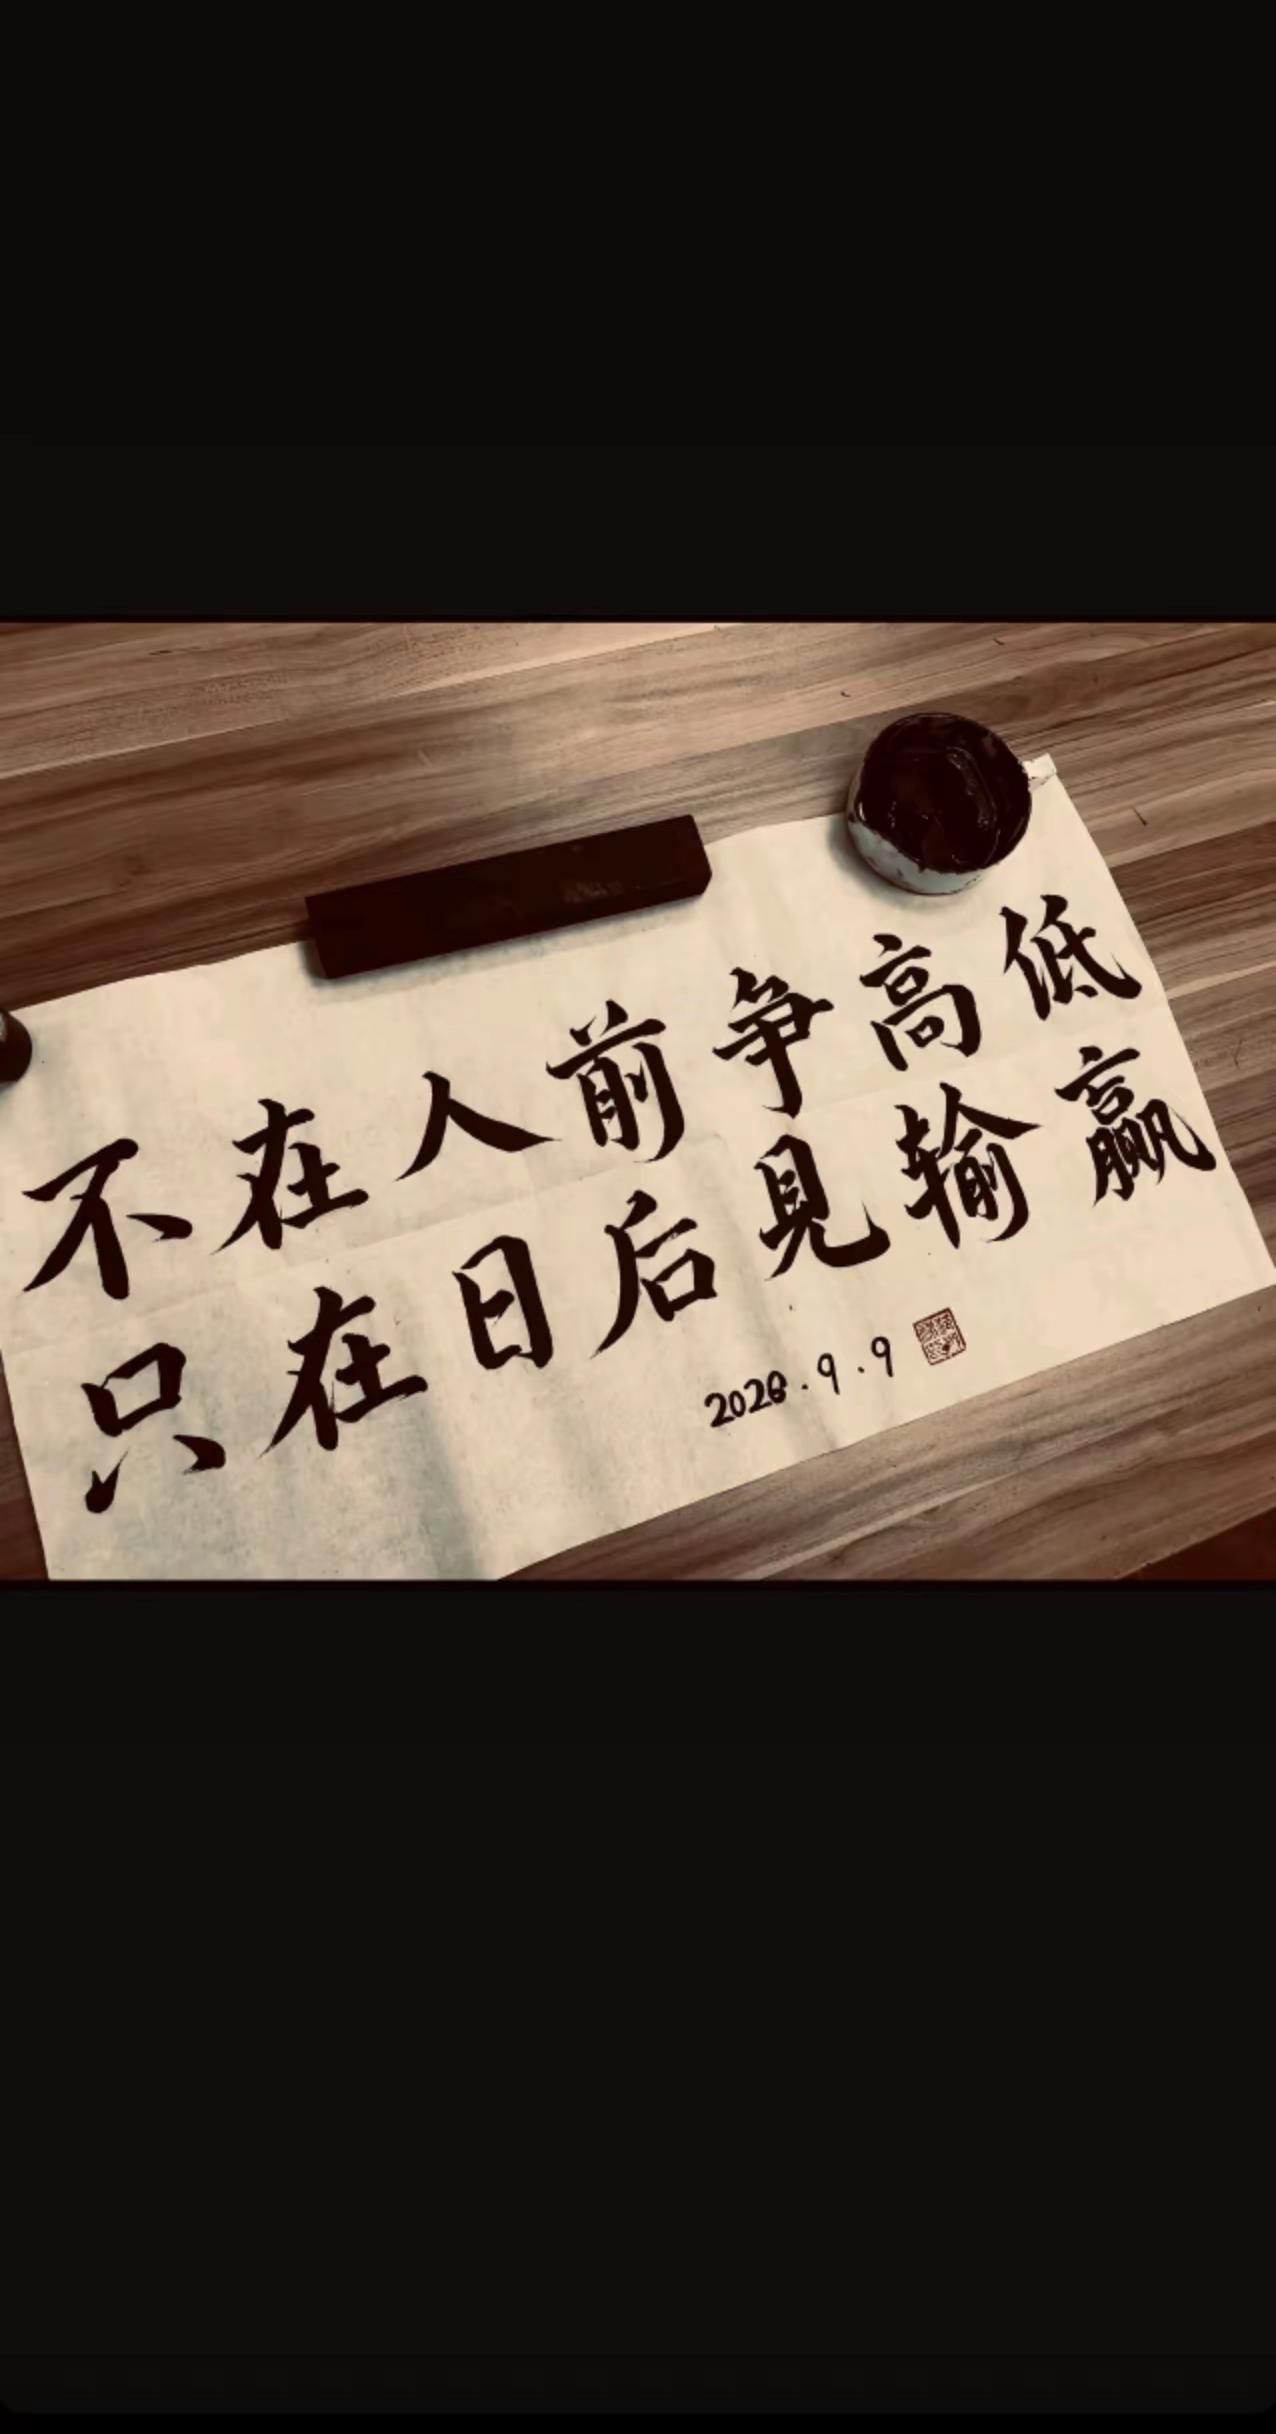 不在人前争高低
只在日后見输赢
2020.9.9